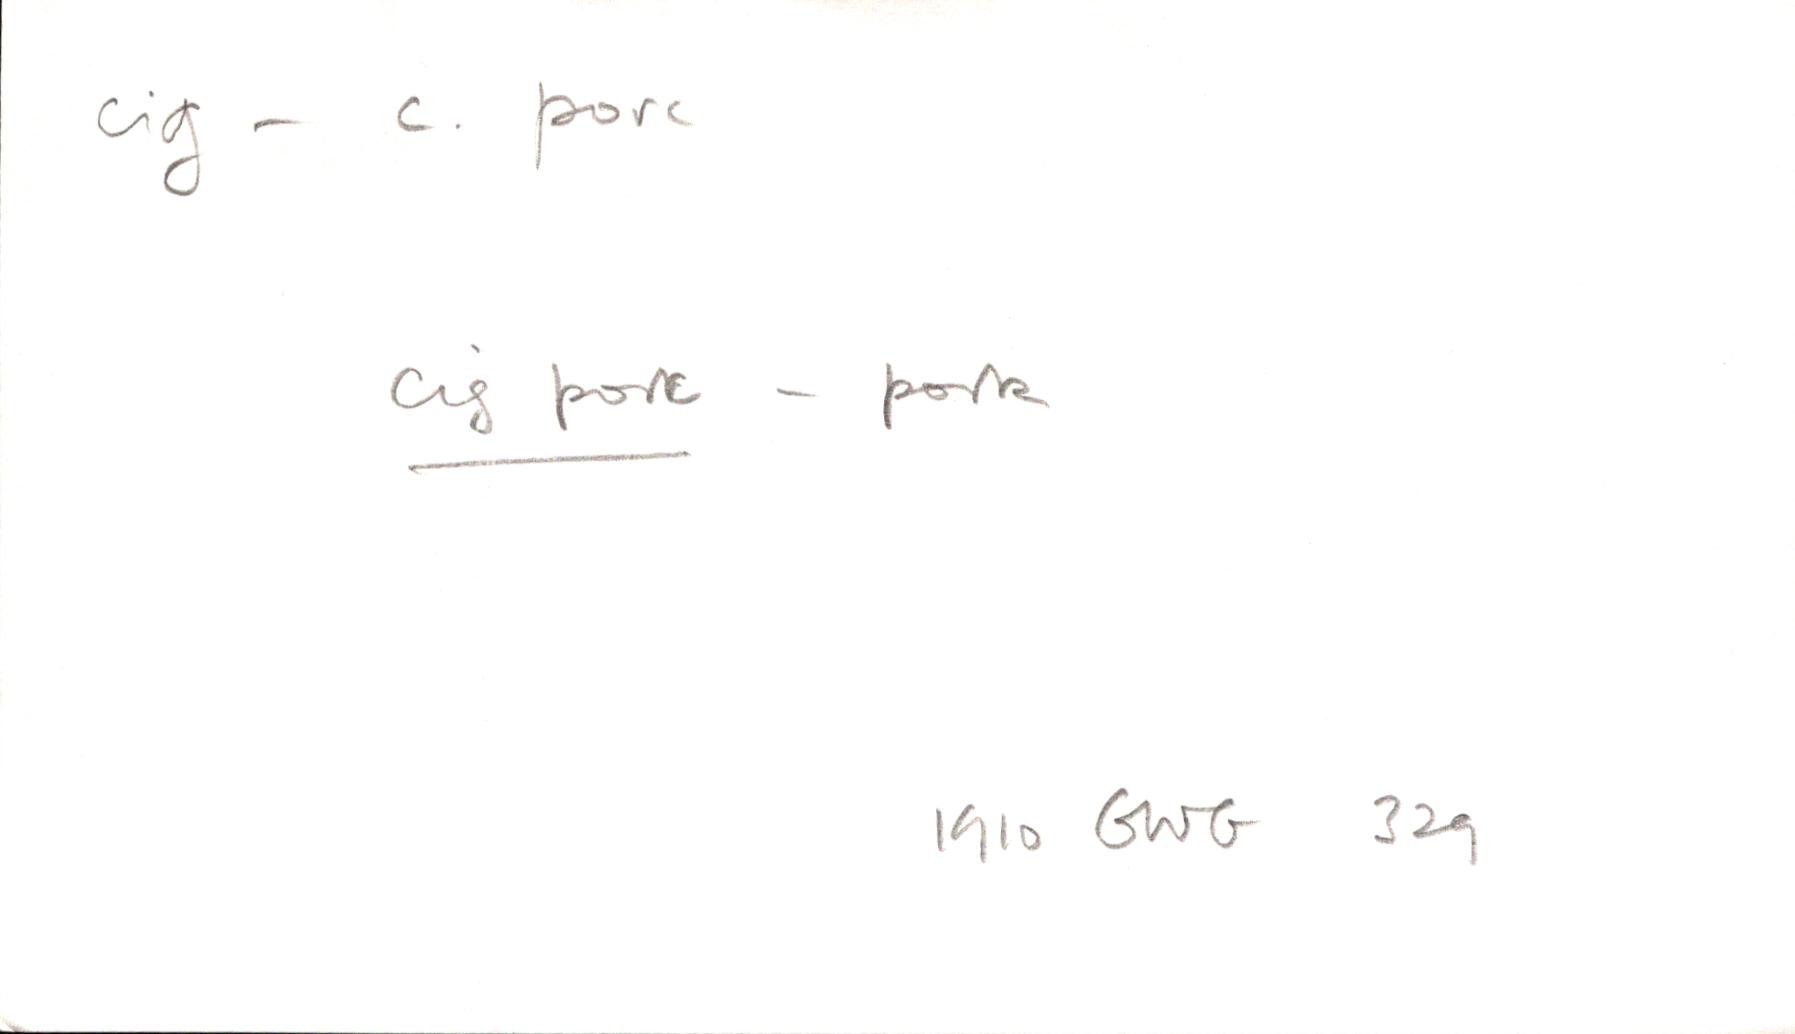 cig – c. porc
cig porc – pork
1910 GWG 329